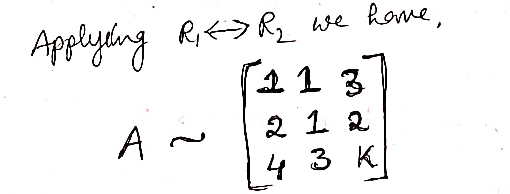 Applying R₁ ↔ R₂ we have,
A ~ [1 1 3
2 1 2
4 3 K]